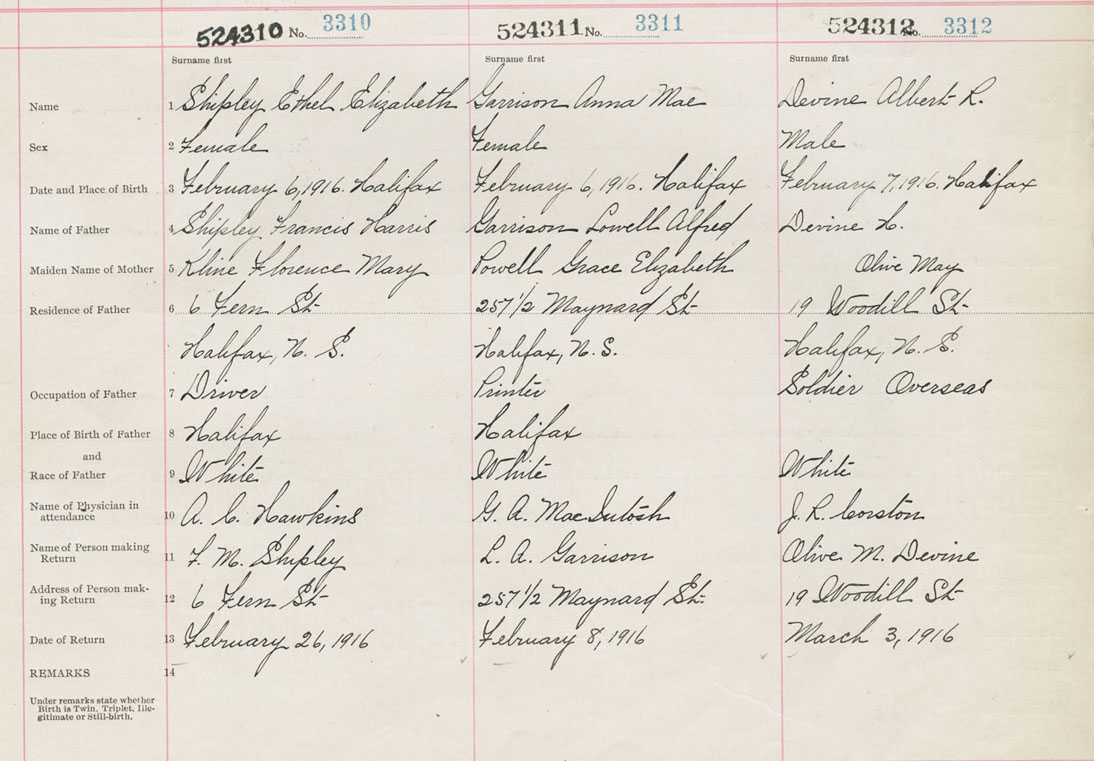 524310 No. 3310 524311 No. 3311 524312 No. 3312
Surname first Surname first Surname first
Name 1 Shipley Ethel Elizabeth Garrison Anna Mae Devine Albert R.
Sex 2 Female Female Male
Date and Place of Birth 3 February 6, 1916. Halifax February 6, 1916. Halifax February 7, 1916. Halifax
Name of Father 4 Shipley Francis Harris Garrison Lowell Alfred Devine H.
Maiden Name of Mother 5 Kline Florence Mary Powell Grace Elizabeth Olive May
Residence of Father 6 6 Fern St. 257 1/2 Maynard St. 19 Woodill St.
Halifax, N. S. Halifax, N. S. Halifax, N. S.
Occupation of Father 7 Driver Printer Soldier Overseas
Place of Birth of Father 8 Halifax Halifax
and
Race of Father 9 White White White
Name of Physician in
attendance 10 A. C. Hawkins G. A. MacIntosh J. R. Corston
Name of Person making
Return 11 F. M. Shipley L. A. Garrison Olive M. Devine
Address of Person mak-
ing Return 12 6 Fern St. 257 1/2 Maynard St. 19 Woodill St.
Date of Return 13 February 26, 1916 February 8, 1916 March 3, 1916
REMARKS 14
Under remarks state whether
Birth is Twin, Triplet, Ille-
gitimate or Still-birth.